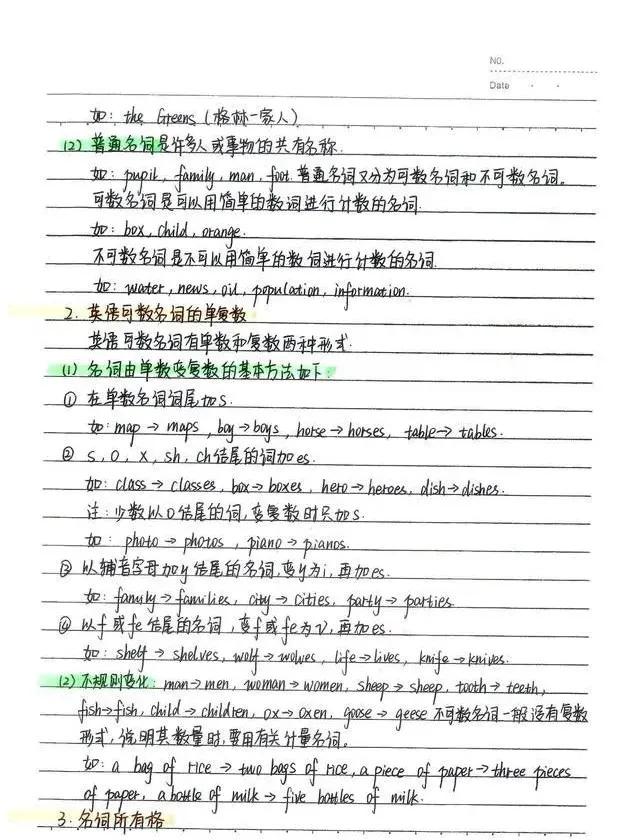 NO.
Date
如: the Greens (格林一家人)
(2) 普通名词是许多人或事物的共有名称.
如: pupil, family, man, foot. 普通名词又分为可数名词和不可数名词。
可数名词是可以用简单的数词进行计数的名词.
如: box, child, orange.
不可数名词是不可以用简单的数词进行计数的名词.
如: water, news, oil, population, information.
2. 英语可数名词的单复数
英语可数名词有单数和复数两种形式.
(1) 名词由单数变复数的基本方法如下:
① 在单数名词词尾加s.
如: map → maps, boy → boys, horse → horses, table → tables.
② s, o, x, sh, ch结尾的词加es.
如: class → classes, box → boxes, hero → heroes, dish → dishes.
注: 少数以o结尾的词,变复数时只加s.
如: photo → photos, piano → pianos.
③ 以辅音字母加y结尾的名词,变y为i,再加es.
如: family → families, city → cities, party → parties.
④ 以f或fe结尾的名词,变f或fe为v,再加es.
如: shelf → shelves, wolf → wolves, life → lives, knife → knives.
(2) 不规则变化: man → men, woman → women, sheep → sheep, tooth → teeth,
fish → fish, child → children, ox → oxen, goose → geese 不可数名词一般没有复数
形式,说明其数量时,要用有关计量名词。
如: a bag of rice → two bags of rice, a piece of paper → three pieces
of paper, a bottle of milk → five bottles of milk.
3. 名词所有格